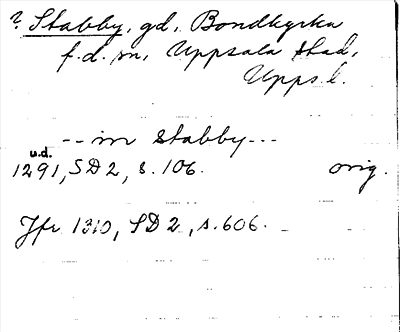 ? Stabby, gd, Bondkyrka
f.d. sn, Uppsala stad,
Upps. l.
-- in Stabby ---
u.d.
1291, SD 2, s. 106. orig.
Jfr 1310, SD 2, s. 606.